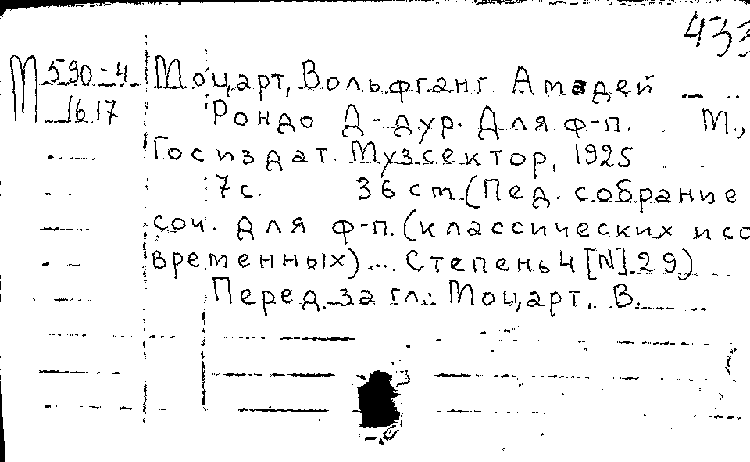 433
М 590-4 Моцарт, Вольфганг Амадей
1617 Рондо Д-дур. Для ф-п. М.,
Госиздат. Музсектор, 1925
7 с. 36 cm. (Пед. собрание
соч. для ф-п. (классических и со
временных)... Степень 4 [N] 29)
Перед загл.: Моцарт. В.